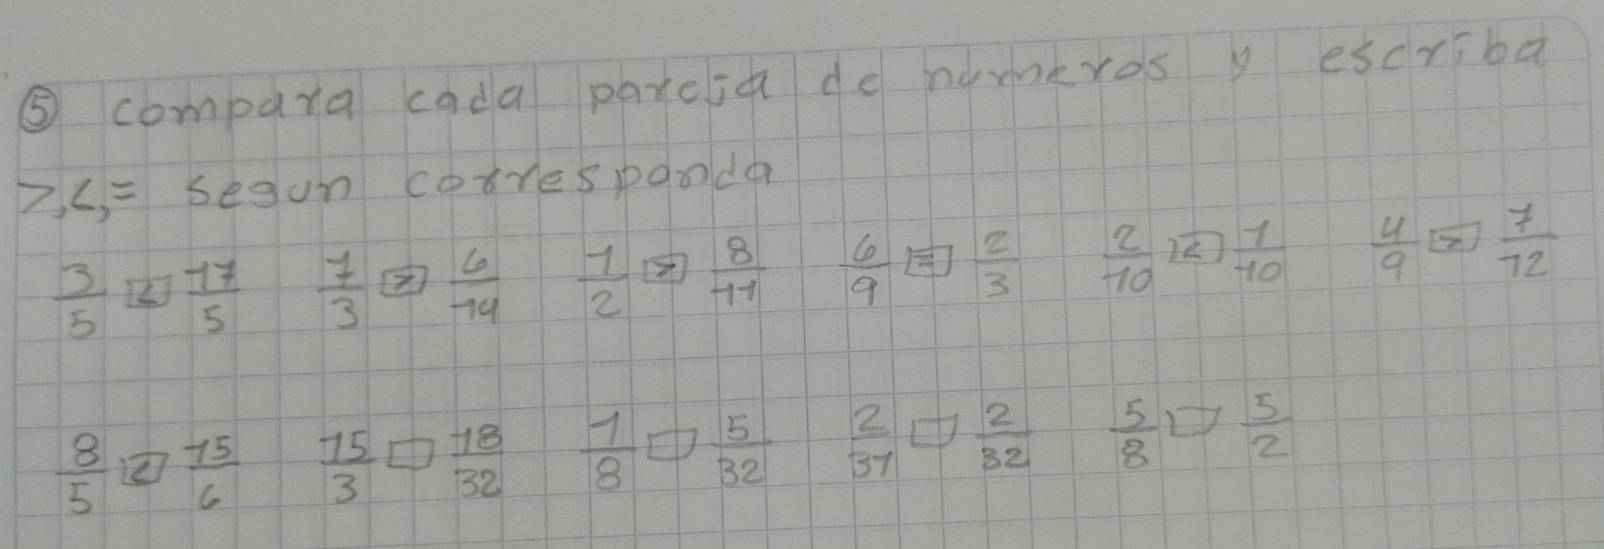 ⑤ compara cada parcia de numeros y escriba
>,<,= segun corresponda
3/5 < 17/5 1/3 > 6/14 1/2 > 8/11 6/9 = 2/3 2/10 < 1/10 4/9 > 7/12
8/5 < 15/6 15/3 □ 18/32 1/8 □ 5/32 2/31 □ 2/32 5/8 □ 5/2